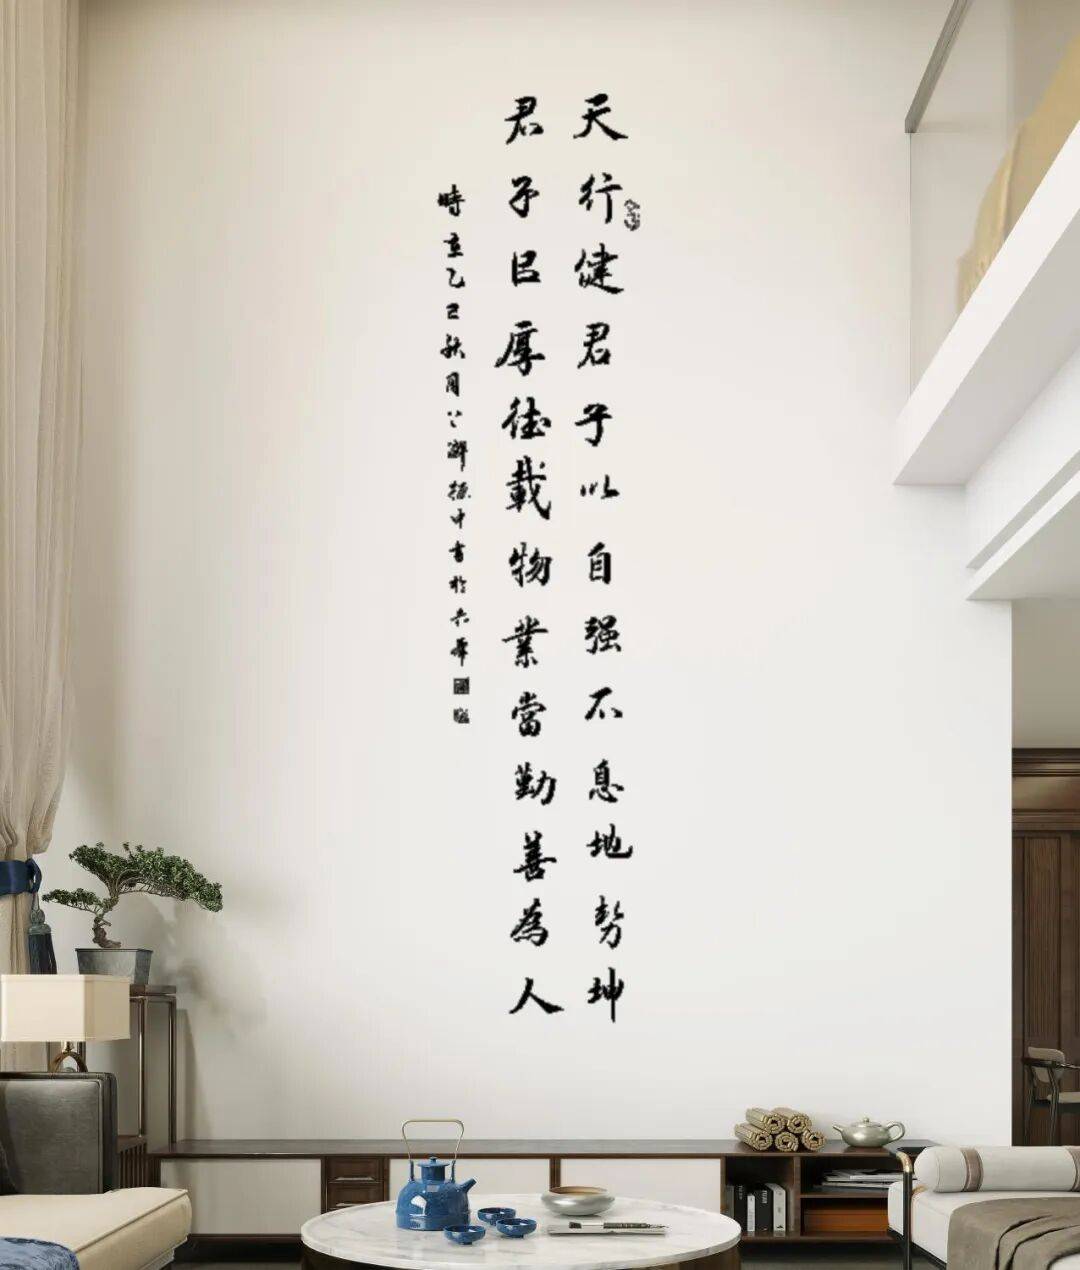 天行健君子以自强不息地势坤
君子㠯厚德載物業當勤善為人
時在乙巳秋月解振中書於京華